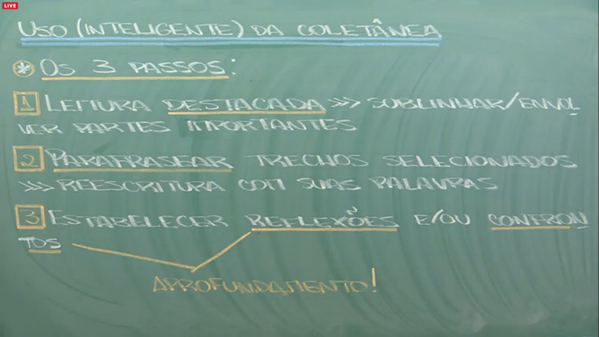 LIVE
USO (INTELIGENTE) DA COLETÂNEA
* OS 3 PASSOS:
1 LEITURA DESTACADA >>> SUBLINHAR/ENVOL
VER PARTES IMPORTANTES
2 PARAFRASEAR TRECHOS SELECIONADOS
>>> REESCRITURA COM SUAS PALAVRAS
3 ESTABELECER REFLEXÕES E/OU CONFRON
TOS
APROFUNDAMENTO!